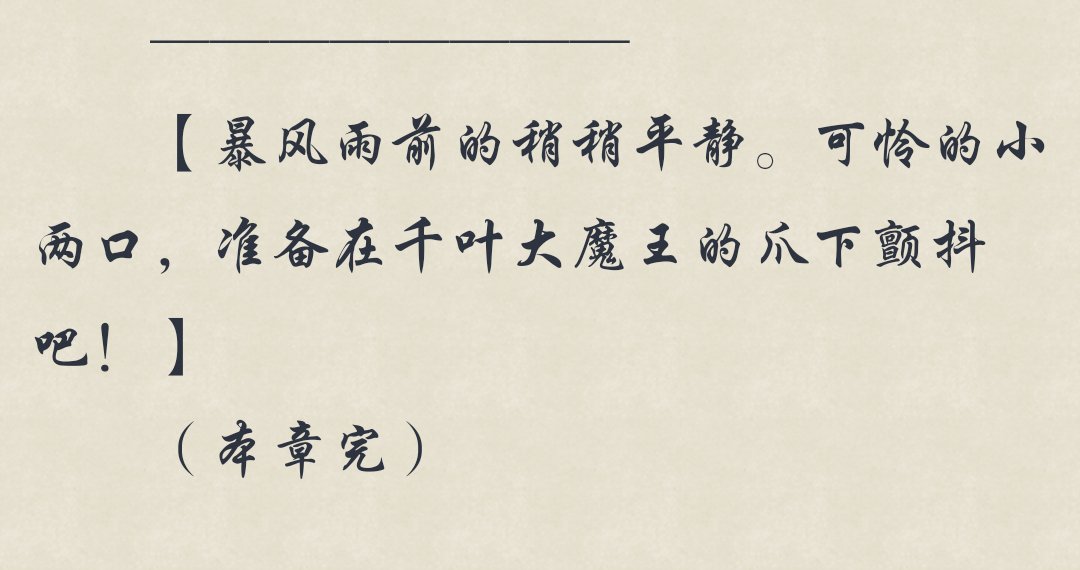 【暴风雨前的稍稍平静。可怜的小
两口，准备在千叶大魔王的爪下颤抖
吧！】
（本章完）